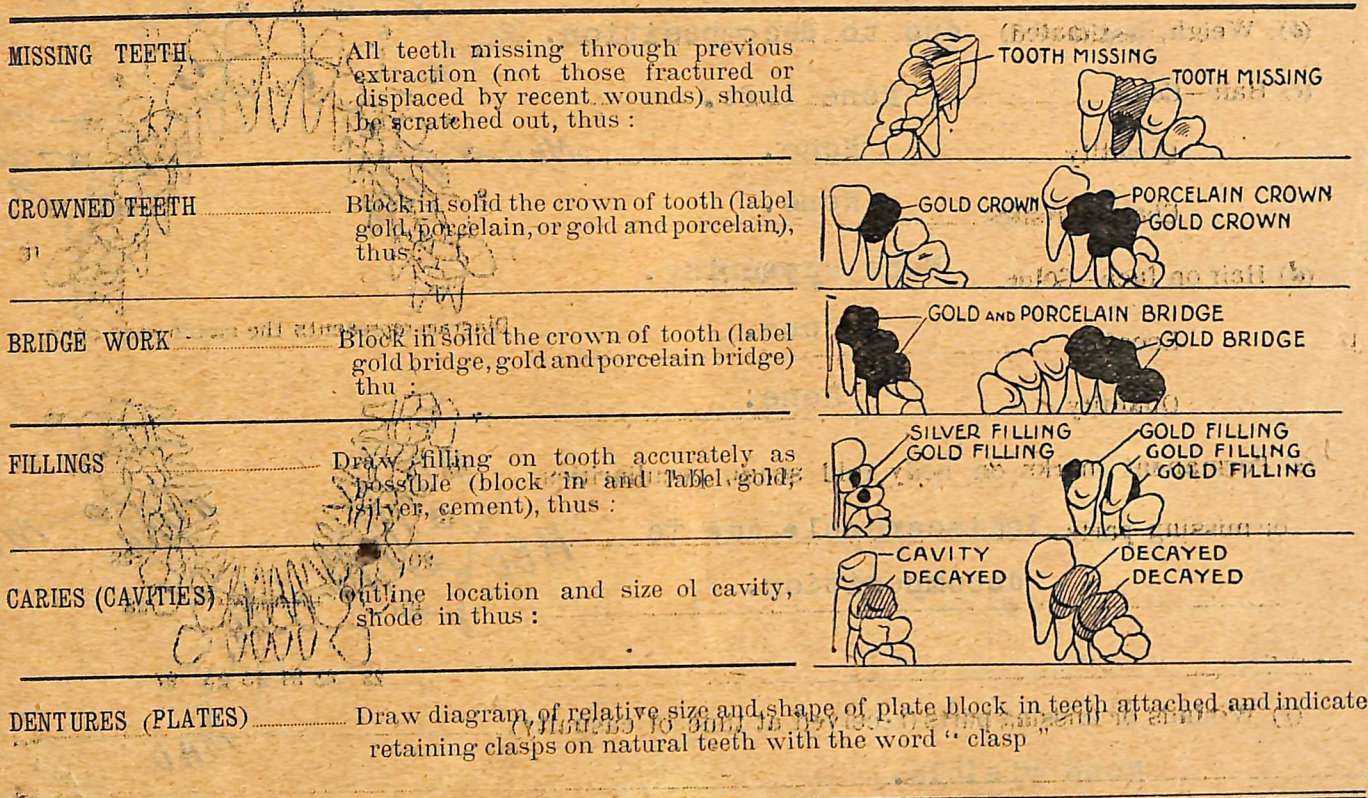 MISSING TEETH All teeth missing through previous
extraction (not those fractured or
displaced by recent wounds), should
be scratched out, thus :
TOOTH MISSING
TOOTH MISSING
CROWNED TEETH Block in solid the crown of tooth (label
gold, porcelain, or gold and porcelain),
thus :
GOLD CROWN
PORCELAIN CROWN
GOLD CROWN
BRIDGE WORK Block in solid the crown of tooth (label
gold bridge, gold and porcelain bridge)
thu :
GOLD AND PORCELAIN BRIDGE
GOLD BRIDGE
FILLINGS Draw filling on tooth accurately as
possible (block in and label gold,
silver, cement), thus :
SILVER FILLING
GOLD FILLING
GOLD FILLING
GOLD FILLING
GOLD FILLING
CARIES (CAVITIES) Outline location and size ol cavity,
shode in thus :
CAVITY
DECAYED
DECAYED
DECAYED
DENTURES (PLATES) Draw diagram of relative size and shape of plate block in teeth attached and indicate
retaining clasps on natural teeth with the word " clasp "